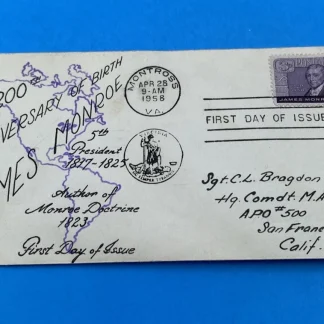 200th
ANNIVERSARY OF BIRTH
JAMES MONROE
5th
President
1817-1825
Author of
Monroe Doctrine
1823
First Day of Issue
MONTROSS
APR 28
9-AM
1958
VA.
JAMES MONROE
FIRST DAY OF ISSUE
VIRGINIA
Sgt. C.L. Bragdon
Hq. Comdt. M.A
APO #500
San Franc
Calif.